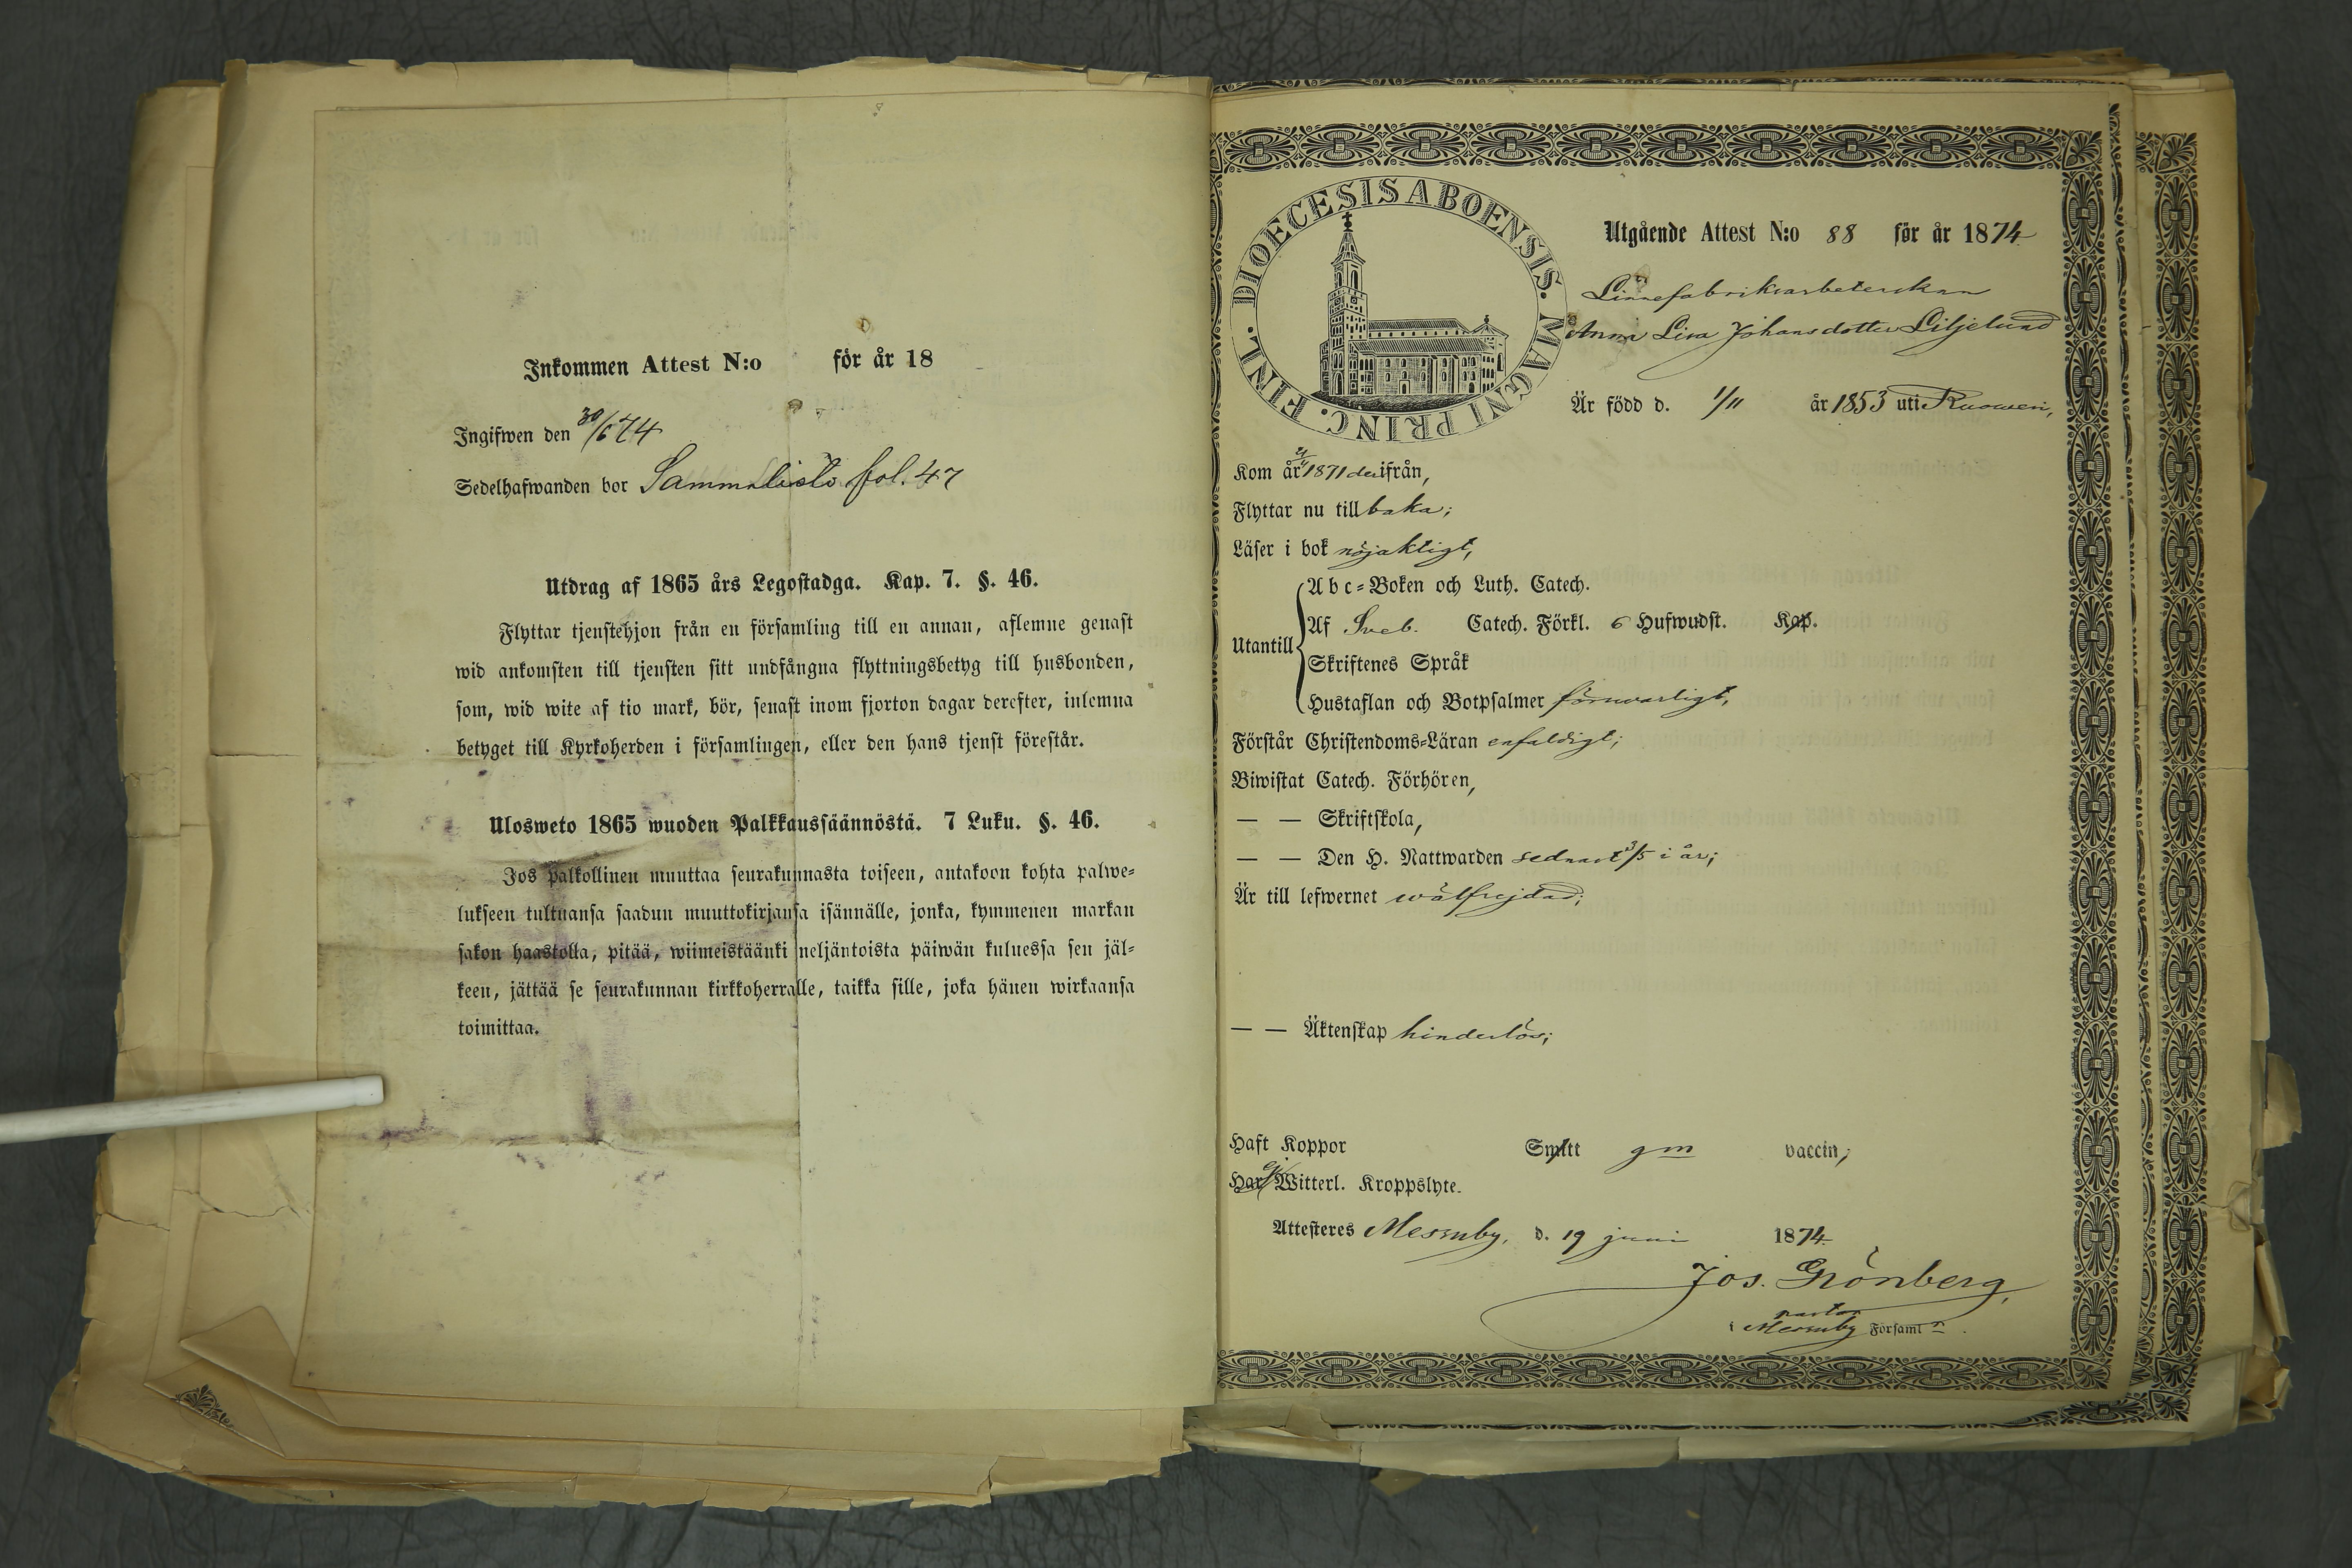 Inkommen Attest N:o för år 18
Ingifwen den 30/6 74
Sedelhafwanden bor Sammalisto fol. 47
Utdrag af 1865 års Legostadga. Kap. 7. §. 46.
Flyttar tjenstehjon från en församling till en annan, aflemne genast
wid ankomsten till tjensten sitt undfångna flyttningsbetyg till husbonden,
som, wid wite af tio mark, bör, senast inom fjorton dagar derefter, inlemna
betyget till Kyrkoherden i församlingen, eller den hans tjenst förestår.
Ulosweto 1865 wuoden Palkkaussäännöstä. 7 Luku. §. 46.
Jos palkollinen muuttaa seurakunnasta toiseen, antakoon kohta palwe-
lukseen tultuansa saadun muuttokirjansa isännälle, jonka, kymmenen markan
sakon haastolla, pitää, wiimeistäänki neljäntoista päiwän kuluessa sen jäl-
keen, jättää se seurakunnan kirkkoherralle, taikka sille, joka hänen wirkaansa
toimittaa.
DIOECESIS ABOENSIS. MAGNI PRINC. FINL.
Utgående Attest N:o 88 för år 1874
Linnefabriksarbeterskan
Anna Lisa Johansdotter Liljelund
Är född d. 1/11 år 1853 uti Ruowesi,
Kom år 1871 derifrån,
Flyttar nu tillbaka;
Läser i bok nöjaktigt,
Abc-Boken och Luth. Catech.
Af Sveb. Catech. Förkl. 6 Hufwudst. Kap.
Utantill
Skriftenes Språk
Hustaflan och Botpsalmer försvarligt,
Förstår Christendoms-Läran enfaldigt;
Biwistat Catech. Förhören,
— — Skriftskola,
— — Den H. Nattwarden sednast 3/5 i år;
Är till lefwernet wälfrejdad;
— — Äktenskap hinderlös;
Haft Koppor Smitt gm vaccin,
Har ej Witterl. Kroppslyte.
Attesteres Messuby, d. 19 juni 1874
Jos. Grönberg,
pastor
i Messuby Församl n.